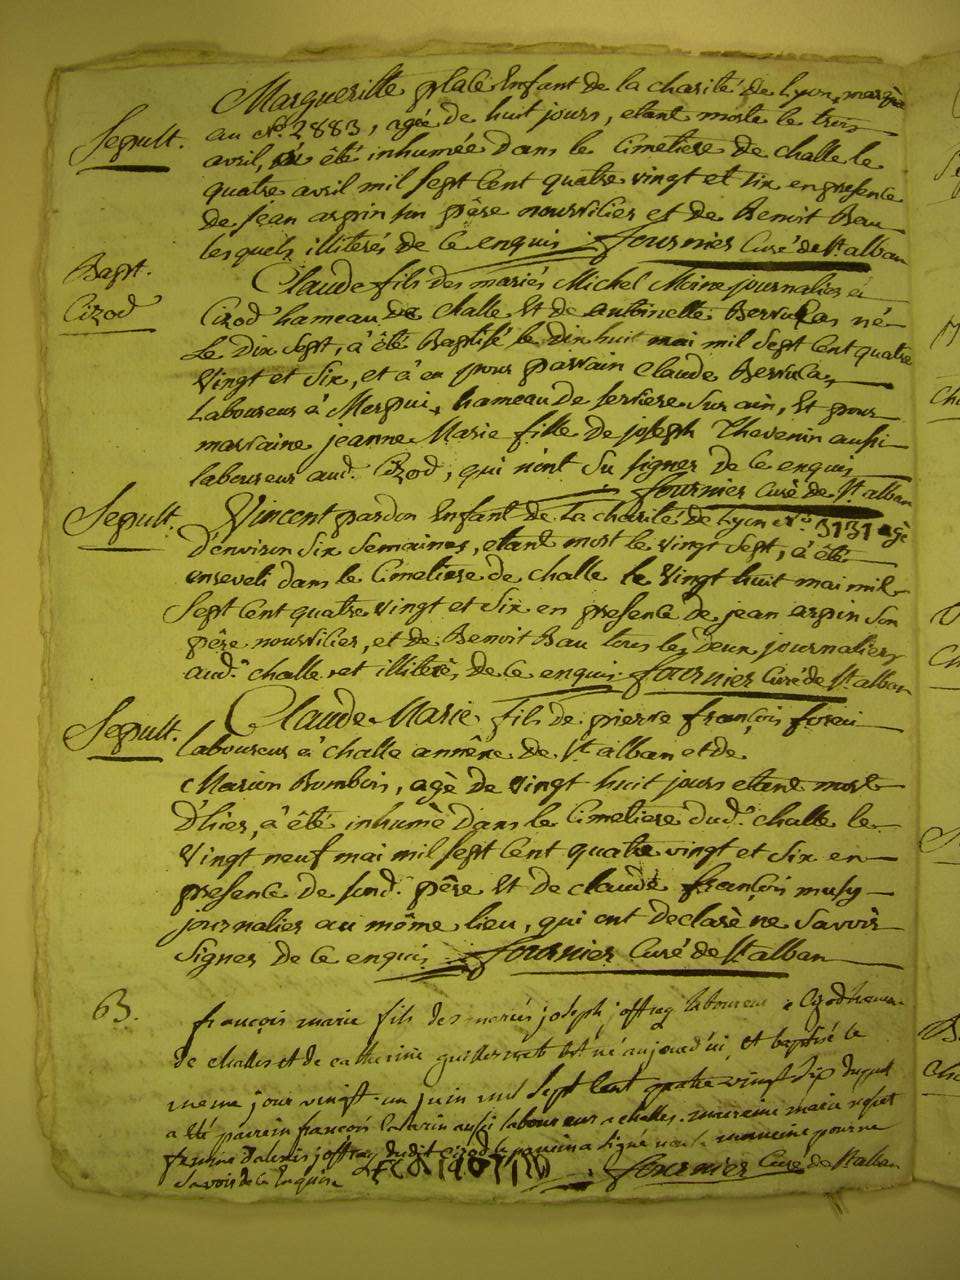 Marguerithe placé Enfant de la charité de Lyon, marquée
Sepult. au N.° 2883, agée de huit jours, etant morte le trois
avril, à été inhumée dans le Cimetiere de challe le
quatre avril mil sept Cent quatre vingt et six en presence
de jean arpin son pêre nourricier et de Benoit Bau
lesquels illiterés de ce enquis. fournier Curé de St. alban
Bapt. Claude fils des mariés Michel Moine journalier à
Cizod Cizod hameau de challe Et de antoinette Berrulas né
Le dix sept, à été Baptisé le dix huit mai mil sept Cent quatre
Vingt et Six, et à eu pour parrain Claude Berrulas
Laboureur à Merpui, hameau de serriere Sur ain, Et pour
marraine jeanne Marie fille de joseph Thevenin aussi
laboureur aud. Cizod, qui n'ont Su signer de ce enquis
fournier Curé de St. alban
Sepult. Vincent pardon Enfant de La charité de Lyon N.° 3131 agé
D'environ Six Semaines, etant mort le vingt Sept, à été
enseveli dans le Cimetiere de challe le Vingt huit mai mil
Sept Cent quatre vingt et Six en presence de jean arpin Son
pêre nourricier, et de Benoit Bau tous les deux journaliers
aud. challe et illiterés de ce enquis. fournier Curé de St. alban
Sepult. Claude Marie fils de pierre françois
laboureur à challe annéxe de St. alban et de
Marion Bombois, agé de Vingt huit jours etant mort
D'hier, à été inhumé dans le Cimetiere dud. challe le
Vingt neuf mai mil sept Cent quatre vingt et Six en
presence de sond. pêre Et de claude françois musy
journalier au même lieu, qui ont declaré ne Savoir
Signer de ce enquis. fournier Curé de St. alban
B. françois marie fils des mariés joseph joffray laboureur à Cizod hameau
de challes et de catherine guillermet Est né aujourd'ui, et baptisé le
meme jour vingt-un juin mil sept Cent quatre vingt six duquel
a été parrein françois aussi laboureur a challes. marreine marie
femme joffray dudit cizod le a signé la marreine pour ne
Savoir de ce Enquise fournier Curé de St. alban